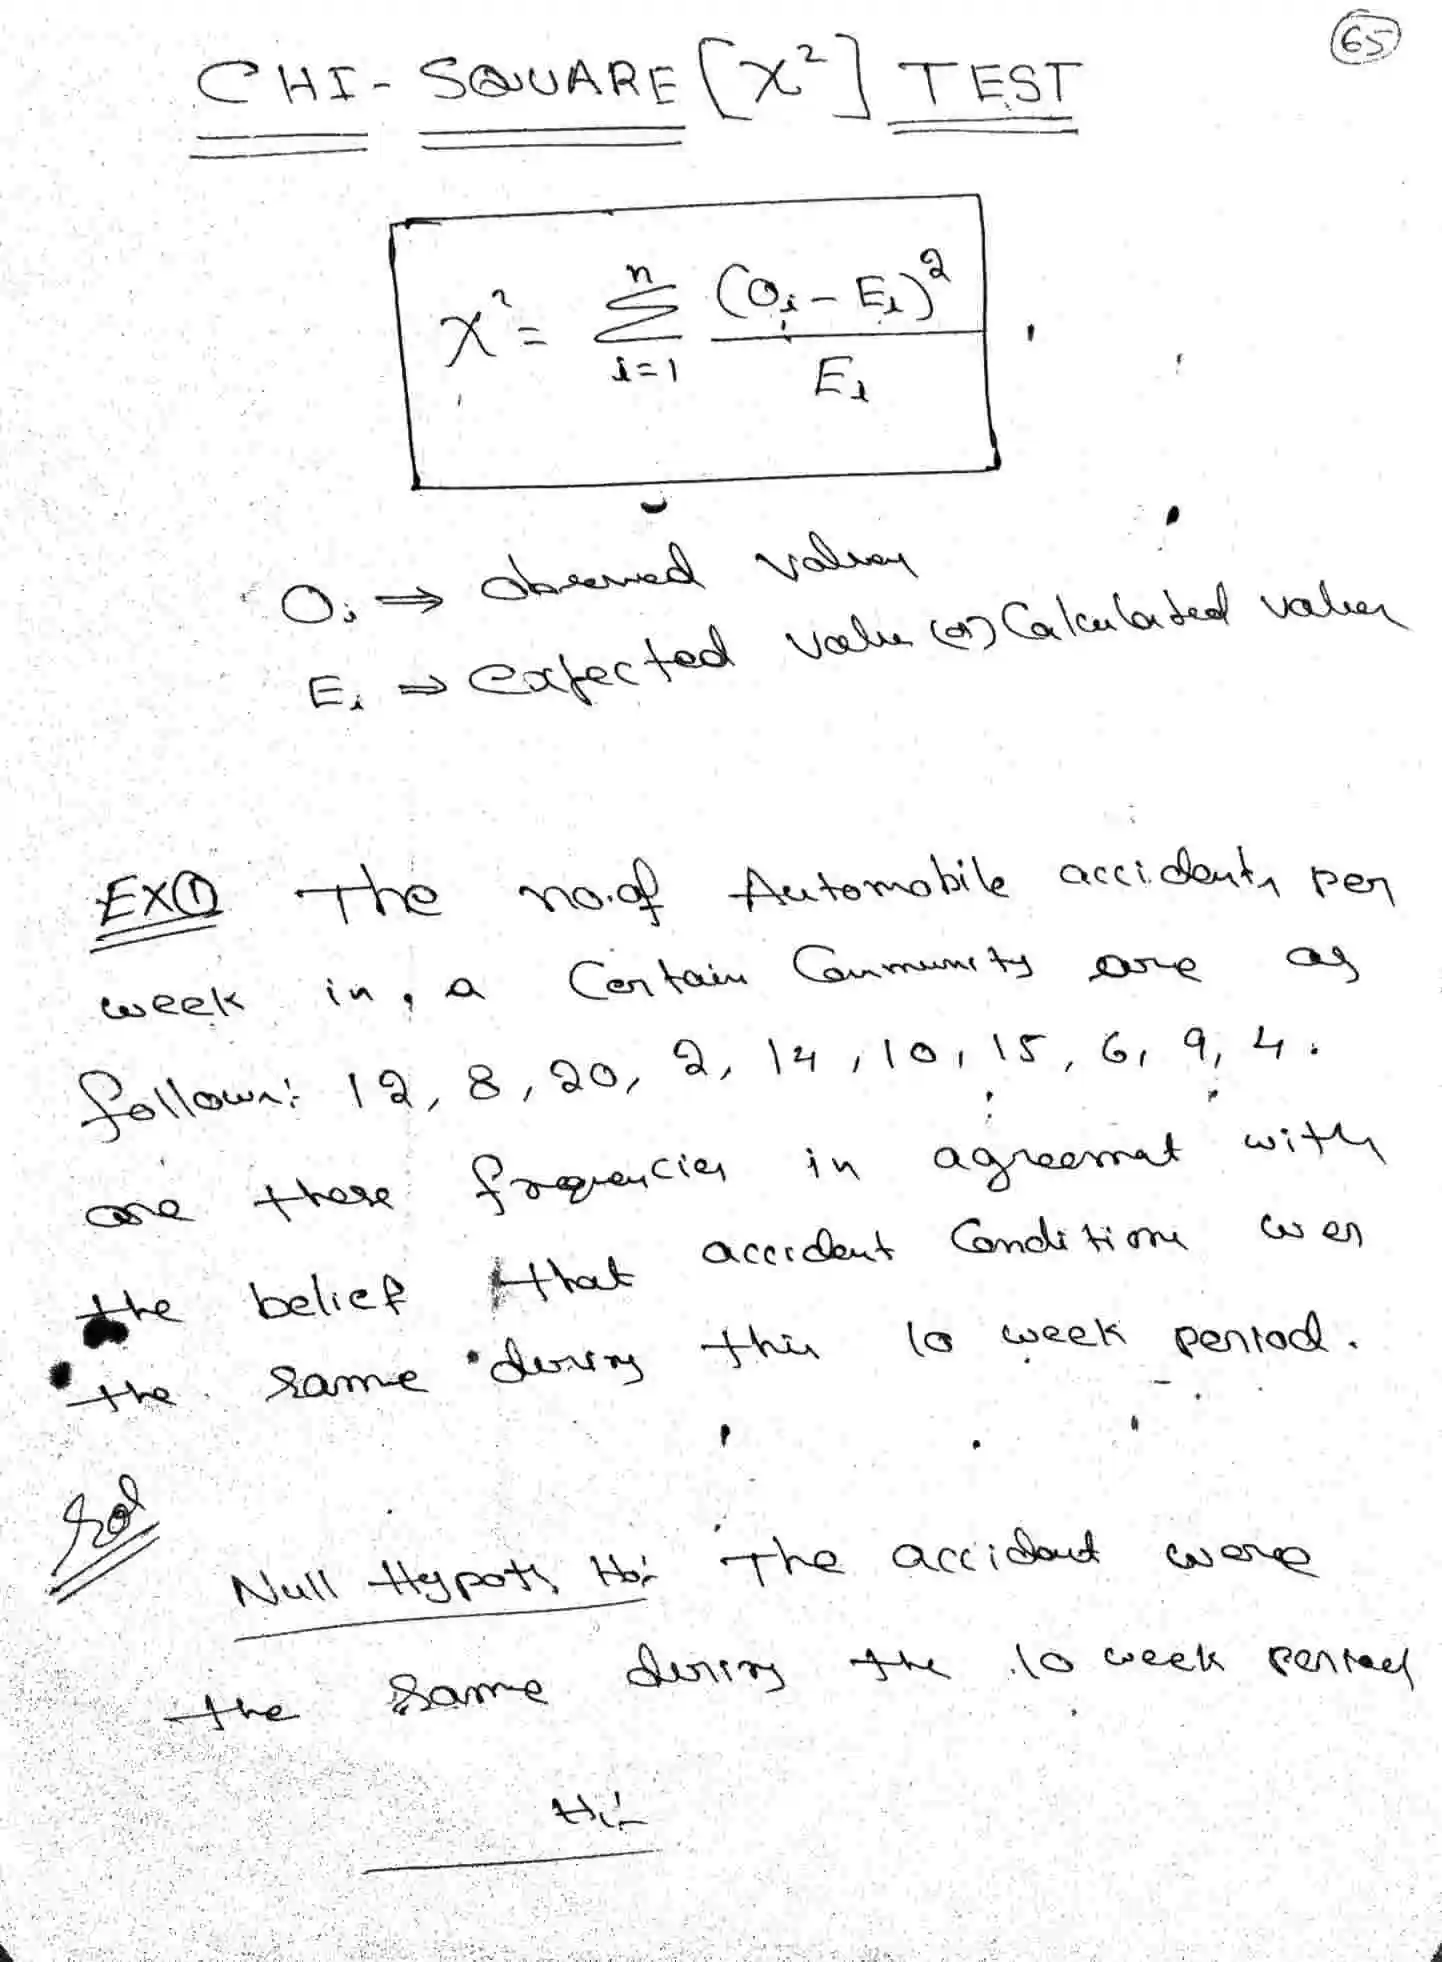 65
CHI-SQUARE [χ²] TEST
χ² = Σ (Oi - Ei)² / Ei
n
i=1
Oi ⇒ Observed values
Ei ⇒ expected value (or) Calculated values
EX① The no.of Automobile accidents per
week in a Certain Community are as
follows: 12, 8, 20, 2, 14, 10, 15, 6, 9, 4.
are these frequencies in agreemat with
the belief that accident Conditions wer
the same during this 10 week period.
Sol
Null Hypoth H₀: The accident were
the same during the 10 week period
H₁:-